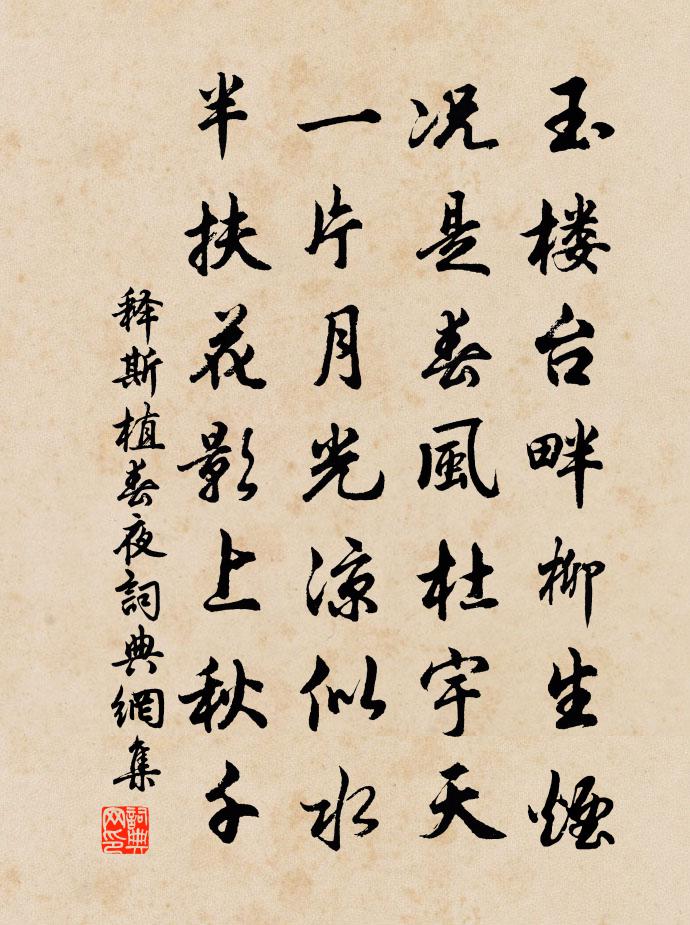 玉楼台畔柳生烟
况是春風杜宇天
一片月光凉似水
半扶花影上秋千
释斯植春夜詞典網集
詞典网印